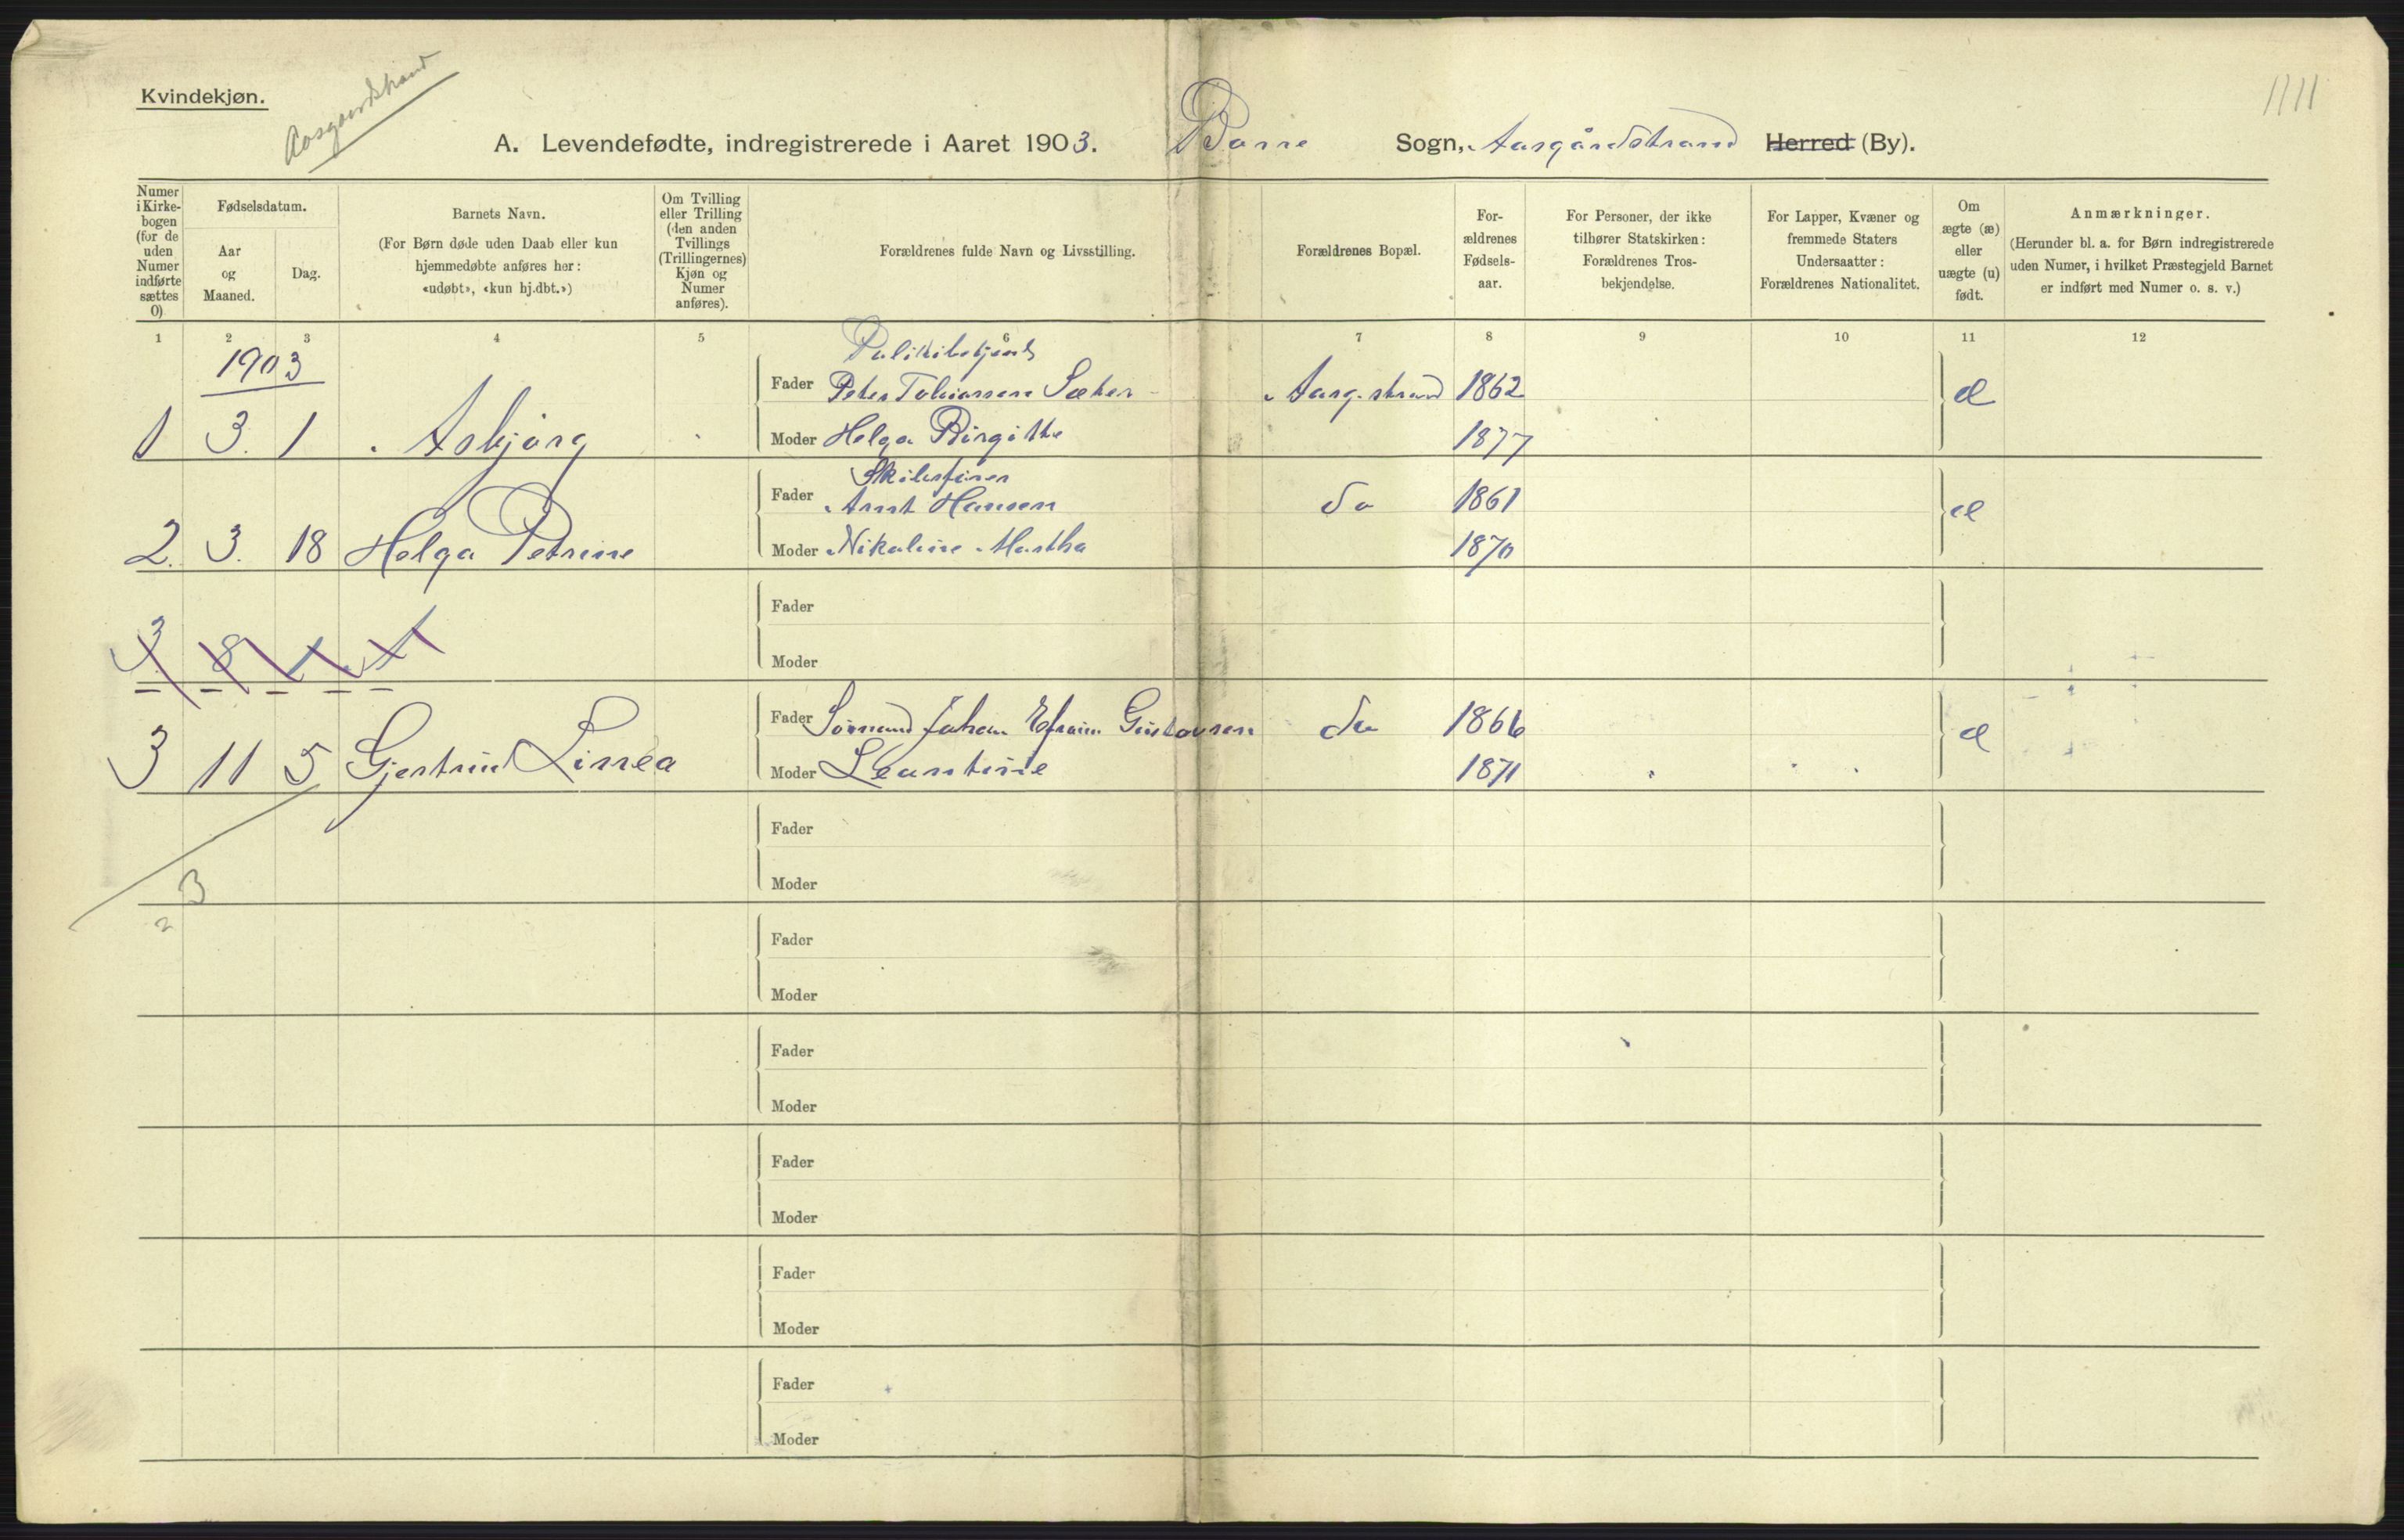 Kvindekjøn.
Aasgaardstrand
1111
A. Levendefødte, indregistrerede i Aaret 1903. Borre Sogn, Aasgårdstrand Herred (By).
Numer i Kirke-bogen (for de uden Numer indførte sættes 0)
Fødselsdatum.
Aar og Maaned.
Dag.
Barnets Navn.
(For Børn døde uden Daab eller kun
hjemmedøbte anføres her:
«udøbt», «kun hj.dbt.»)
Om Tvilling
eller Trilling
(den anden
Tvillings
(Trillingernes)
Kjøn og
Numer
anføres).
Forældrenes fulde Navn og Livsstilling.
Forældrenes Bopæl.
For-
ældrenes
Fødsels-
aar.
For Personer, der ikke
tilhører Statskirken:
Forældrenes Tros-
bekjendelse.
For Lapper, Kvæner og
fremmede Staters
Undersaatter:
Forældrenes Nationalitet.
Om
ægte (æ)
eller
uægte (u)
født.
Anmærkninger.
(Herunder bl. a. for Børn indregistrerede
uden Numer, i hvilket Præstegjeld Barnet
er indført med Numer o. s. v.)
1 2 3 4 5 6 7 8 9 10 11 12
1903
Politibetjent
Fader Peter Tobiassen Sæther Aasg.strand 1862 æ
1 3. 1 Asbjørg Moder Helga Birgitte 1877
Skibsfører
Fader Arnt Hansen do 1861 æ
2. 3. 18 Helga Petrine Moder Nikoline Martha 1870
Fader
3 8
Moder
Fader Sømand Johan Efraim Gustavsen do 1866 æ
3 11 5 Gjertrud Linnea Moder Leontine 1871
Fader
3
Moder
2
Fader
Moder
Fader
Moder
Fader
Moder
Fader
Moder
Fader
Moder